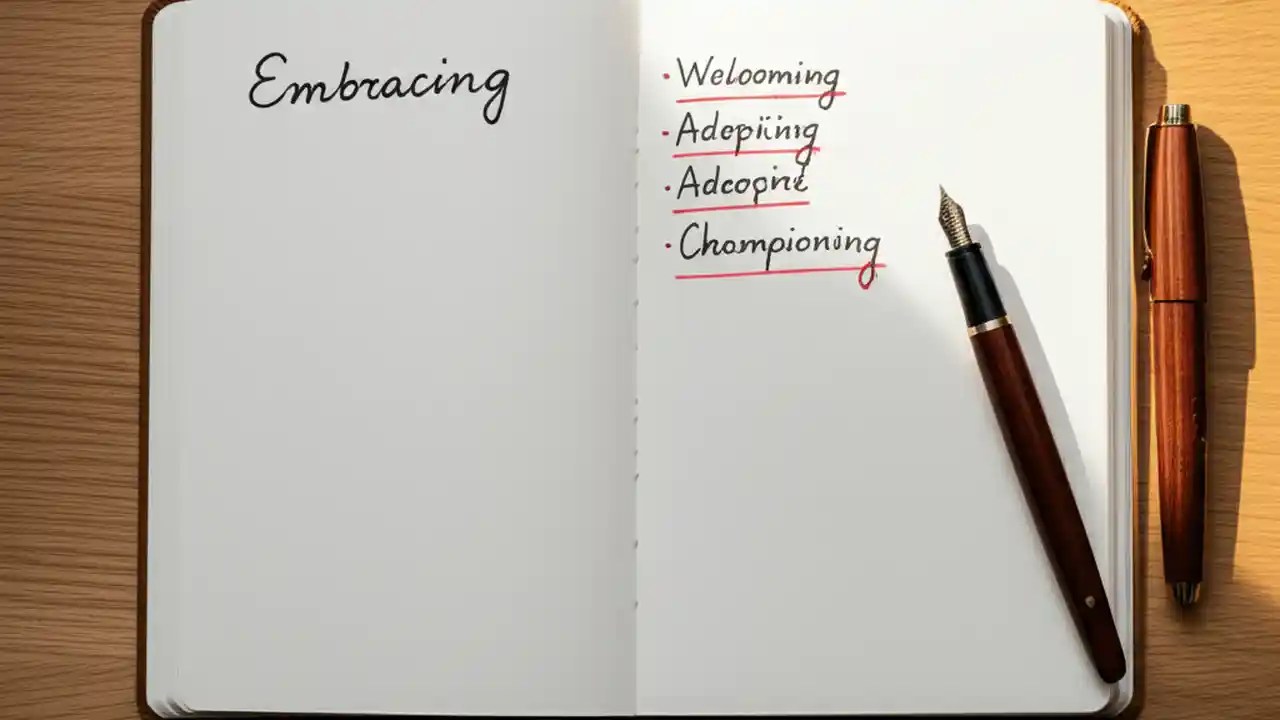 Embracing
· Welooming
· Adepiing
· Adcopire
· Championing